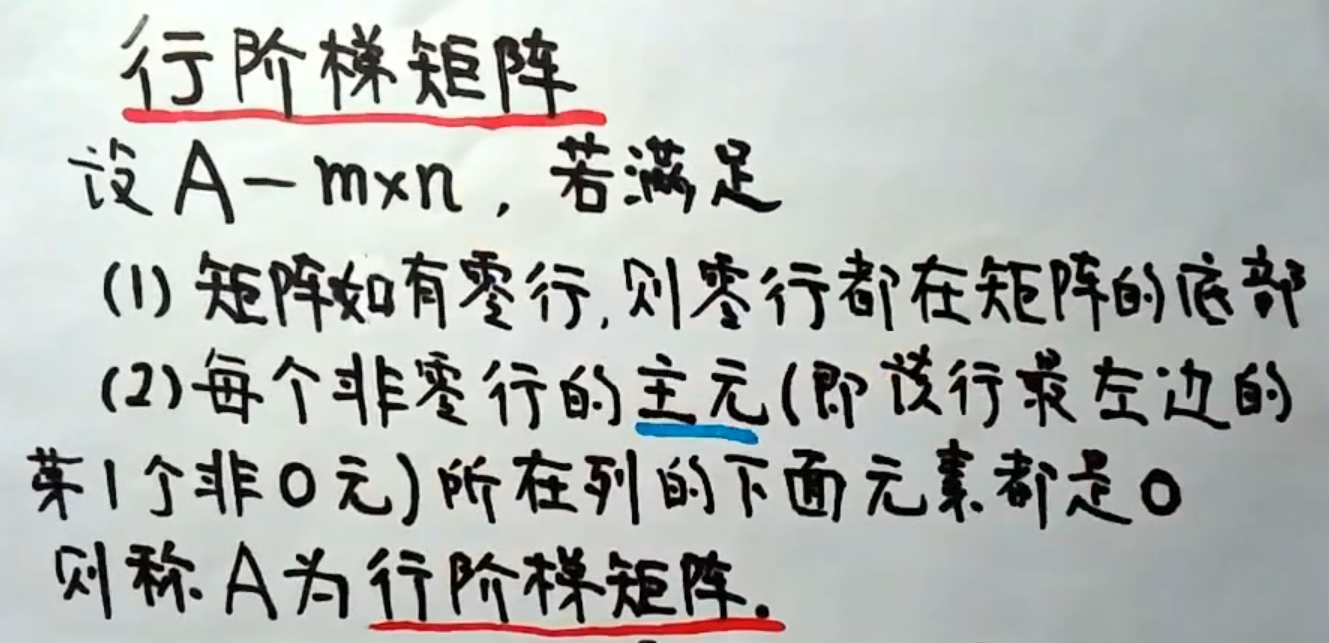 行阶梯矩阵
设 A — m×n , 若满足
(1) 矩阵如有零行,则零行都在矩阵的底部
(2) 每个非零行的主元(即该行最左边的
第1个非0元)所在列的下面元素都是0
则称 A 为行阶梯矩阵.